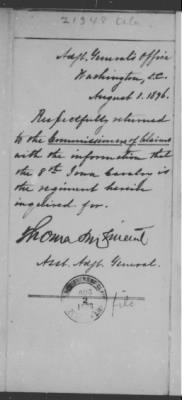 21948
Adjt. General's Office
Washington, D.C.
August 1. 1896.
Respectfully returned
to the Commissioners of Claims
with the information that
the 8th Iowa Cavalry is
the regiment herein
inquired for.
Thomas M. Vincent
Asst. Adjt. General.
AUG
2
file